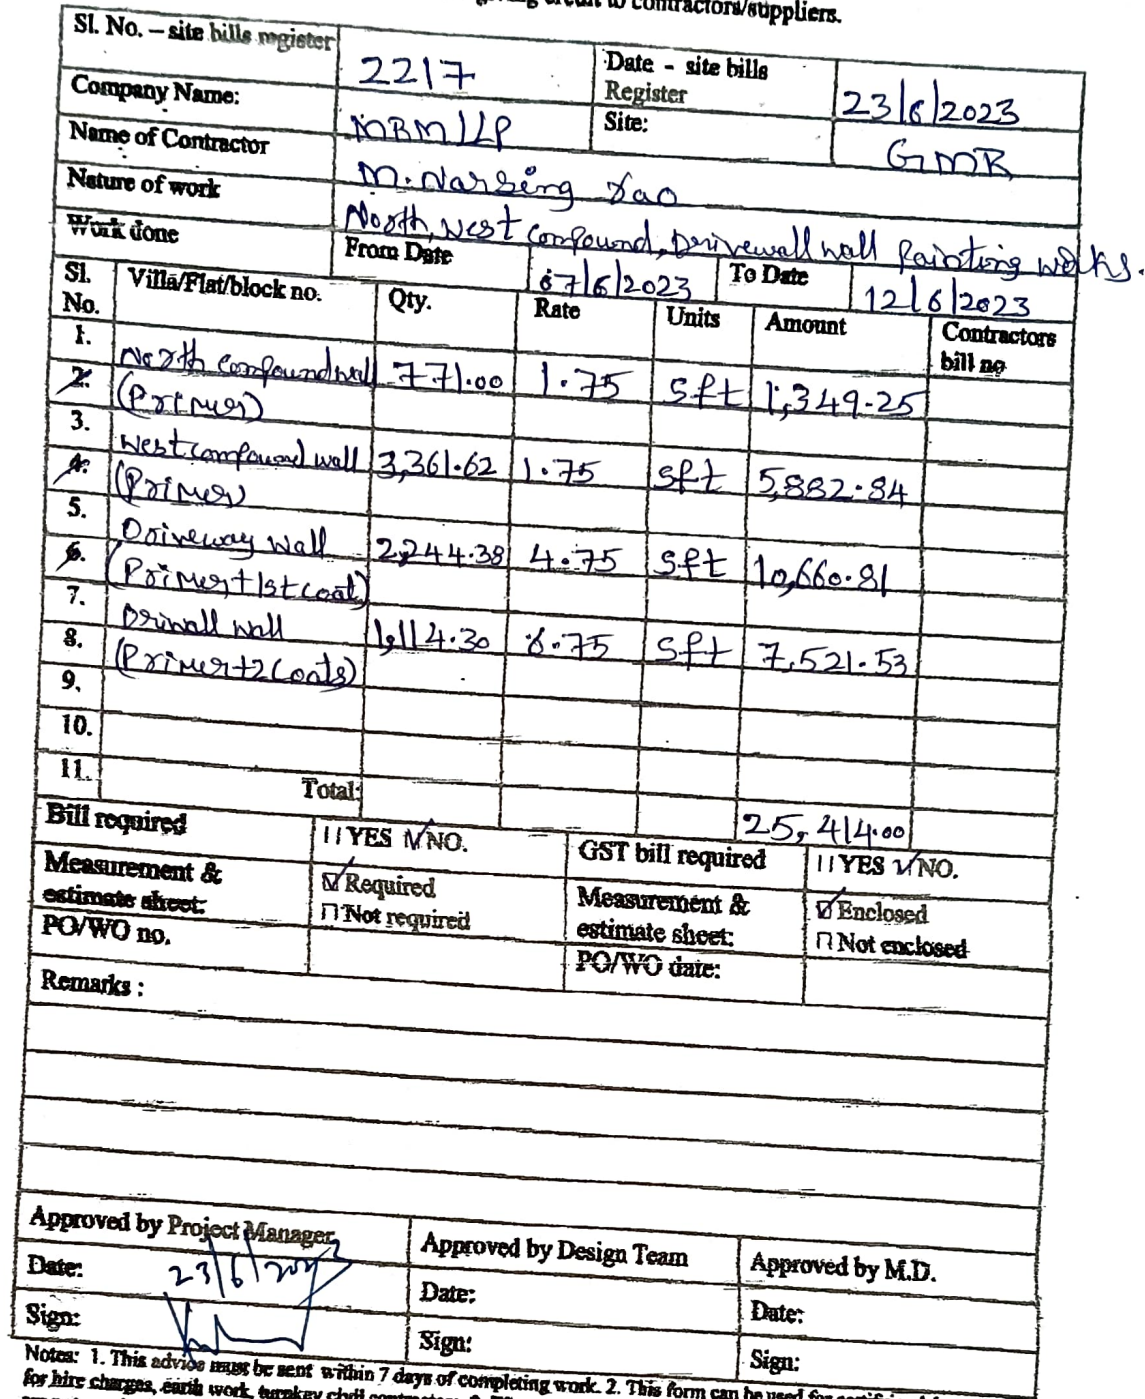 credit to contractors/suppliers.
Sl. No. – site bills register 2217 Date - site bills Register 23/6/2023
Company Name: MBMLLP Site: GMR
Name of Contractor M. Narsing rao
Nature of work North, West compound, Drivewall wall Painting works.
Work done From Date 07/6/2023 To Date 12/6/2023
Sl. No. Villa/Flat/block no. Qty. Rate Units Amount Contractors bill no
1. North compound wall 771.00 1.75 sft 1,349.25
2. (Primer)
3. West compound wall 3,361.62 1.75 sft 5,882.84
4. (Primer)
5. Driveway wall 2,244.38 4.75 sft 10,660.81
6. (Primer + 1st coat)
7. Driwall wall 1,114.30 6.75 sft 7,521.53
8. (Primer+2 Coats)
9.
10.
11. Total: 25,414.00
Bill required YES NO. GST bill required YES NO.
Measurement & estimate sheet: Required Measurement & estimate sheet: Enclosed
Not required Not enclosed
PO/WO no. PO/WO date:
Remarks :
Approved by Project Manager Approved by Design Team Approved by M.D.
Date: 23/6/2023 Date: Date:
Sign: Sign: Sign:
Notes: 1. This advice must be sent within 7 days of completing work. 2. This form can be used for
for hire charges, earth work, turnkey civil